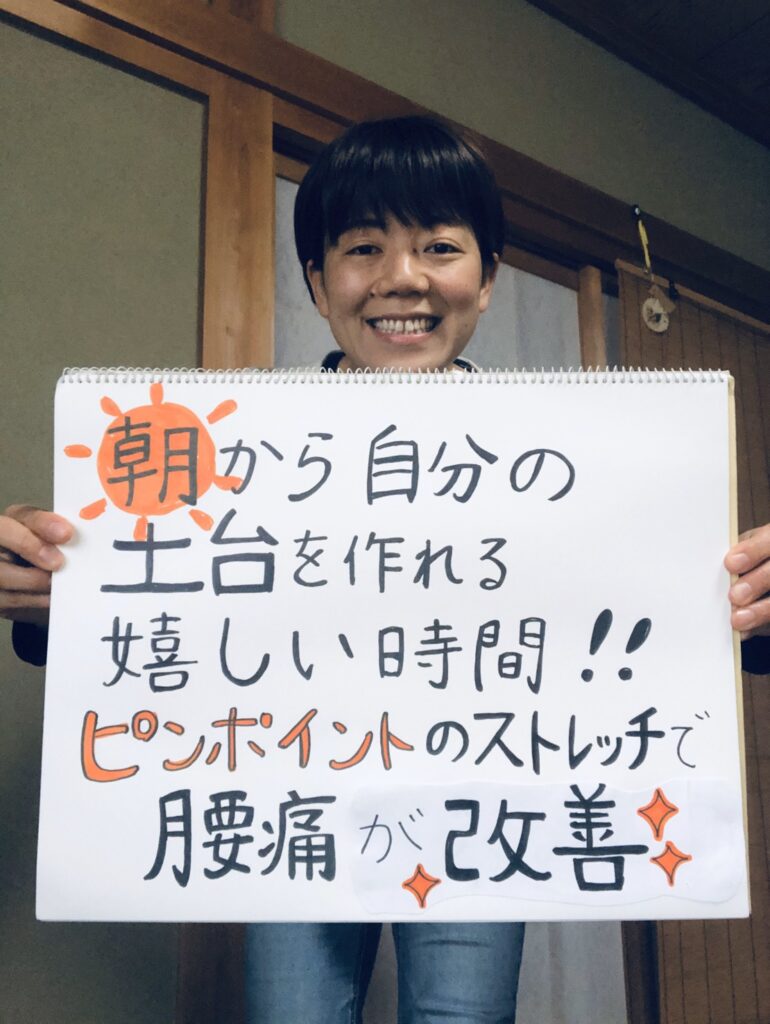 朝から自分の
土台を作れる
嬉しい時間!!
ピンポイントのストレッチで
腰痛が改善